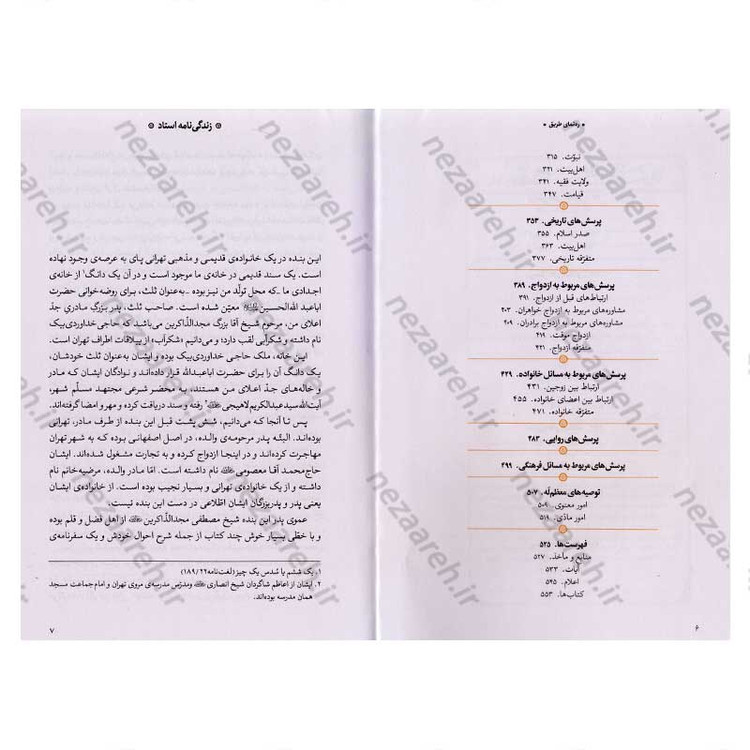 رهنمای طریق
نبوّت. ۳۱۵
اهل‌بیت. ۳۲۱
ولایت فقیه. ۳۴۱
قیامت. ۳۴۷
پرسش‌های تاریخی. ۳۵۳
صدر اسلام. ۳۵۵
اهل‌بیت. ۳۶۳
متفرّقه تاریخی. ۳۷۷
پرسش‌های مربوط به ازدواج. ۳۸۹
ارتباط‌های قبل از ازدواج. ۳۹۱
مشاوره‌های مربوط به ازدواج خواهران. ۴۰۳
مشاوره‌های مربوط به ازدواج برادران. ۴۰۹
ازدواج موقت. ۴۱۹
متفرّقه ازدواج. ۴۲۱
پرسش‌های مربوط به مسائل خانواده. ۴۲۹
ارتباط بین زوجین. ۴۳۱
ارتباط بین اعضای خانواده. ۴۵۵
متفرّقه خانواده. ۴۷۱
پرسش‌های روایی. ۴۸۳
پرسش‌های مربوط به مسائل فرهنگی. ۴۹۹
توصیه‌های معظم‌له. ۵۰۷
امور معنوی. ۵۰۹
امور مادّی. ۵۱۹
فهرست‌ها. ۵۲۵
منابع و مآخذ. ۵۲۷
آیات. ۵۳۳
اعلام. ۵۴۵
کتاب‌ها. ۵۵۳
۶
زندگی‌نامه استاد
این بنده در یک خانواده‌ی قدیمی و مذهبی تهرانی پای به عرصه‌ی وجود نهاده
است. یک سند قدیمی در خانه‌ی ما موجود است و در آن یک دانگ۱ از خانه‌ی
اجدادی ما ـ که محل تولّد من نیز بوده ـ به‌عنوان ثلث، برای روضه‌خوانی حضرت
اباعبد الله‌الحسین معیّن شده است. صاحب ثلث، پدر بزرگِ مادریِ جدّ
اعلای من، مرحوم شیخ آقا بزرگ مجدالذّاکرین می‌باشد که حاجی خداوردی‌بیک
نام داشته و شکرآبی لقب دارد؛ و می‌دانیم «شکرآب» از ییلاقات اطراف تهران است.
این خانه، ملک حاجی خداوردی‌بیک بوده و ایشان به‌عنوان ثلث خودشان،
یک دانگ آن را برای حضرت اباعبدالله قرار داده‌اند و نوادگان ایشان که مادر
و خاله‌های جدّ اعلای من هستند، به محضر شرعی مجتهد مسلّم شهر،
آیت‌الله سیدعبدالکریم لاهیجی۲ رفته و سند دریافت کرده و مهر و امضا گرفته‌اند.
پس تا آنجا که می‌دانیم، شش پشت قبل این بنده از طرف مادر، تهرانی
بوده‌اند. البتّه پدر مرحومه‌ی والده، در اصل اصفهانی بوده که به شهر تهران
آمده و در اینجا ازدواج کرده و به تجارت مشغول شده‌اند. ایشان
حاج محمد آقا معصومی نام داشته است. امّا مادر والده، مرضیه‌خانم نام
داشته و از یک خانواده‌ی تهرانی و بسیار نجیب بوده است. از خانواده‌ی ایشان
یعنی پدر و پدربزرگان ایشان اطّلاعی در دست این بنده نیست.
عموی پدر این بنده شیخ مصطفی مجدالذّاکرین از اهل فضل و قلم بوده
و با خطّی بسیار خوش چند کتاب از جمله شرح احوال خودش و یک سفرنامه‌ی
۱. یک ششم یا سُدس یک چیز (لغت‌نامه ۱۸۹/۲۲)
۲. ایشان از اعاظم شاگردان شیخ انصاری و مدرّس مدرسه‌ی مروی تهران و امام‌جماعت مسجد
همان مدرسه بوده‌اند.
۷
nezaareh.ir